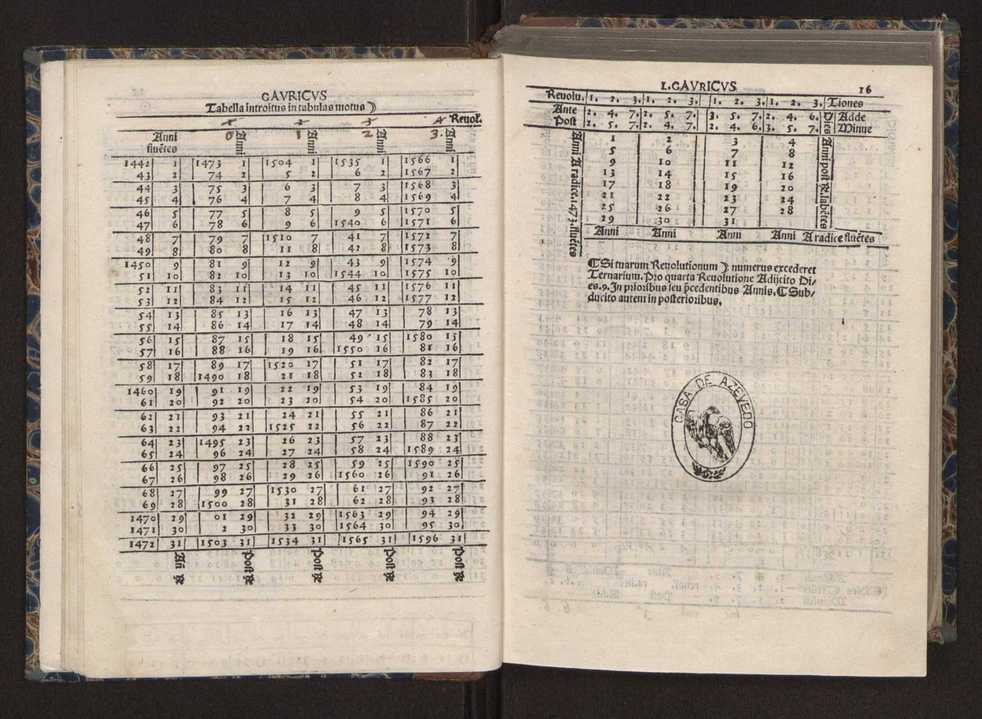 GAVRICVS
Tabella introitus in tabulas motus ☽
1 2 3 4 Reuol.
Anni 0 Anni 1 Anni 2 Anni 3. Anni
fluētes
1442 1 1473 1 1504 1 1535 1 1566 1
43 2 74 2 5 2 6 2 1567 2
44 3 75 3 6 3 7 3 1568 3
45 4 76 4 7 4 8 4 1569 4
46 5 77 5 8 5 9 5 1570 5
47 6 78 6 9 6 1540 6 1571 6
48 7 79 7 1510 7 41 7 1572 7
49 8 80 8 11 8 42 8 1573 8
1450 9 81 9 12 9 43 9 1574 9
51 10 82 10 13 10 1544 10 1575 10
52 11 83 11 14 11 45 11 1576 11
53 12 84 12 15 12 46 12 1577 12
54 13 85 13 16 13 47 13 78 13
55 14 86 14 17 14 48 14 79 14
56 15 87 15 18 15 49 15 1580 15
57 16 88 16 19 16 1550 16 81 16
58 17 89 17 1520 17 51 17 82 17
59 18 1490 18 21 18 52 18 83 18
1460 19 91 19 22 19 53 19 84 19
61 20 92 20 23 20 54 20 1585 20
62 21 93 21 24 21 55 21 86 21
63 22 94 22 1525 22 56 22 87 22
64 23 1495 23 26 23 57 23 88 23
65 24 96 24 27 24 58 24 1589 24
66 25 97 25 28 25 59 25 1590 25
67 26 98 26 29 26 1560 26 91 26
68 27 99 27 1530 27 61 27 92 27
69 28 1500 28 31 28 62 28 93 28
1470 29 01 29 32 29 1563 29 94 29
1471 30 2 30 33 30 1564 30 95 30
1472 31 1503 31 1534 31 1565 31 1596 31
An ℞ Post ℞ Post ℞ Post ℞ Post ℞
L. GAVRICVS 16
Reuolu. 1. 2. 3. 1. 2. 3. 1. 2. 3. 1. 2. 3. Tiones
Ante 2. 4. 7. 2. 5. 7. 3. 5. 7. 2. 4. 6. Dies Adde
Post 2. 5. 7. 2. 4. 7. 2. 4. 6. 3. 5. 7. Minue
Anni A radice. 473. fluētes
1 2 3 4
5 6 7 8
9 10 11 12
13 14 15 16
17 18 19 20
21 22 23 24
25 26 27 28
29 30 31
Anni post ℞. labētes
Anni Anni Anni Anni A radice fluētes
¶ Si tuarum Reuolutionum ☽ numerus excederet
Ternarium. Pro quarta Reuolutione Adijcito Di-
es. 9. In prioribus seu p̄cedentibus Annis. ¶ Sub-
ducito autem in posterioribus.
CASA DE AZEVEDO